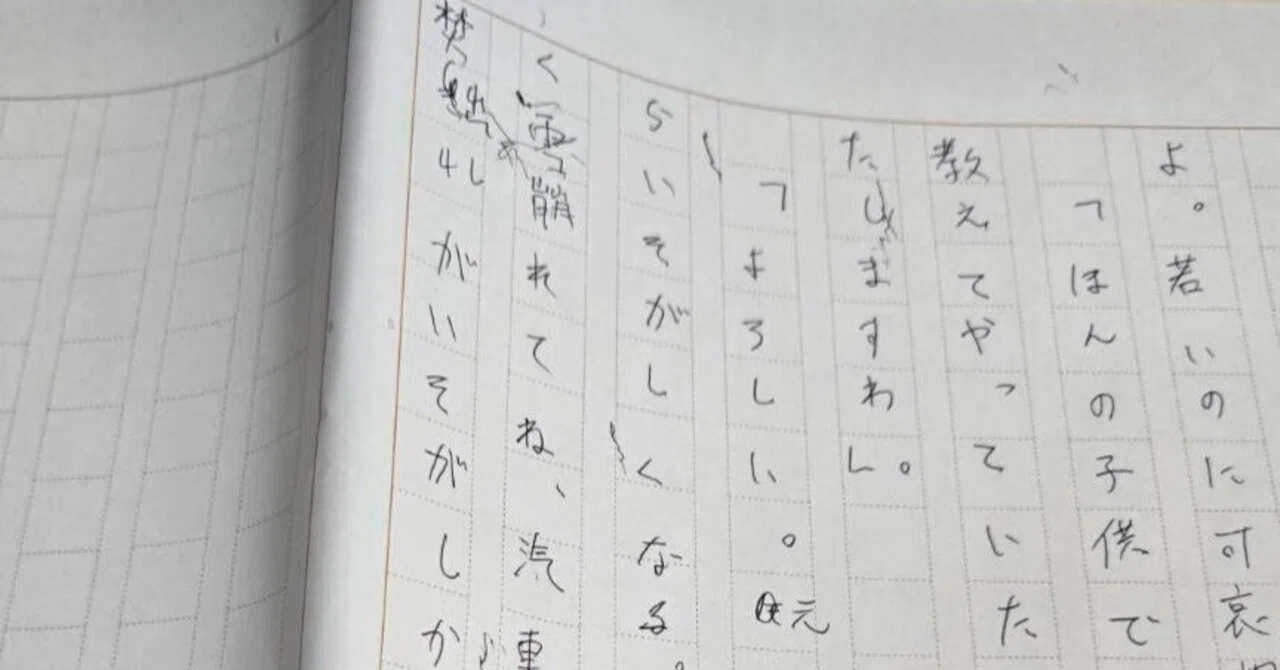 よ。若いのに可哀
「ほんの子供で
教えてやっていた
たしますわ。」
「よろしい。元
らいそがしくなる。
く雪崩れてね、汽車
焚出しがいそがしか